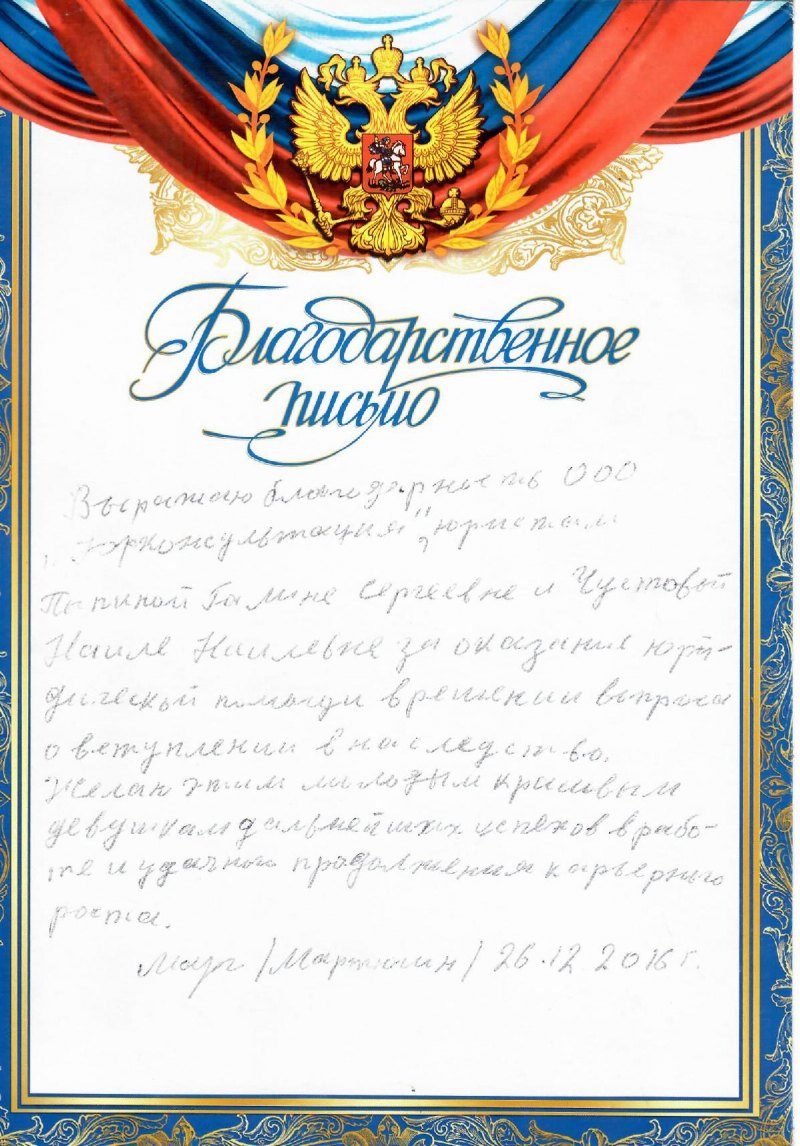 Благодарственное
письмо
Выражаю благодарность ООО
„Юрконсультация", юристам
Галине Сергеевне и Чустовой
Наиле Наилевне за оказание юри-
дической помощи в решении вопроса
о вступлении в наследство.
Желаю этим молодым красивым
девушкам дальнейших успехов в рабо-
те и удачного продолжения карьерного
роста.
/Мартюшин/ 26.12 2016 г.